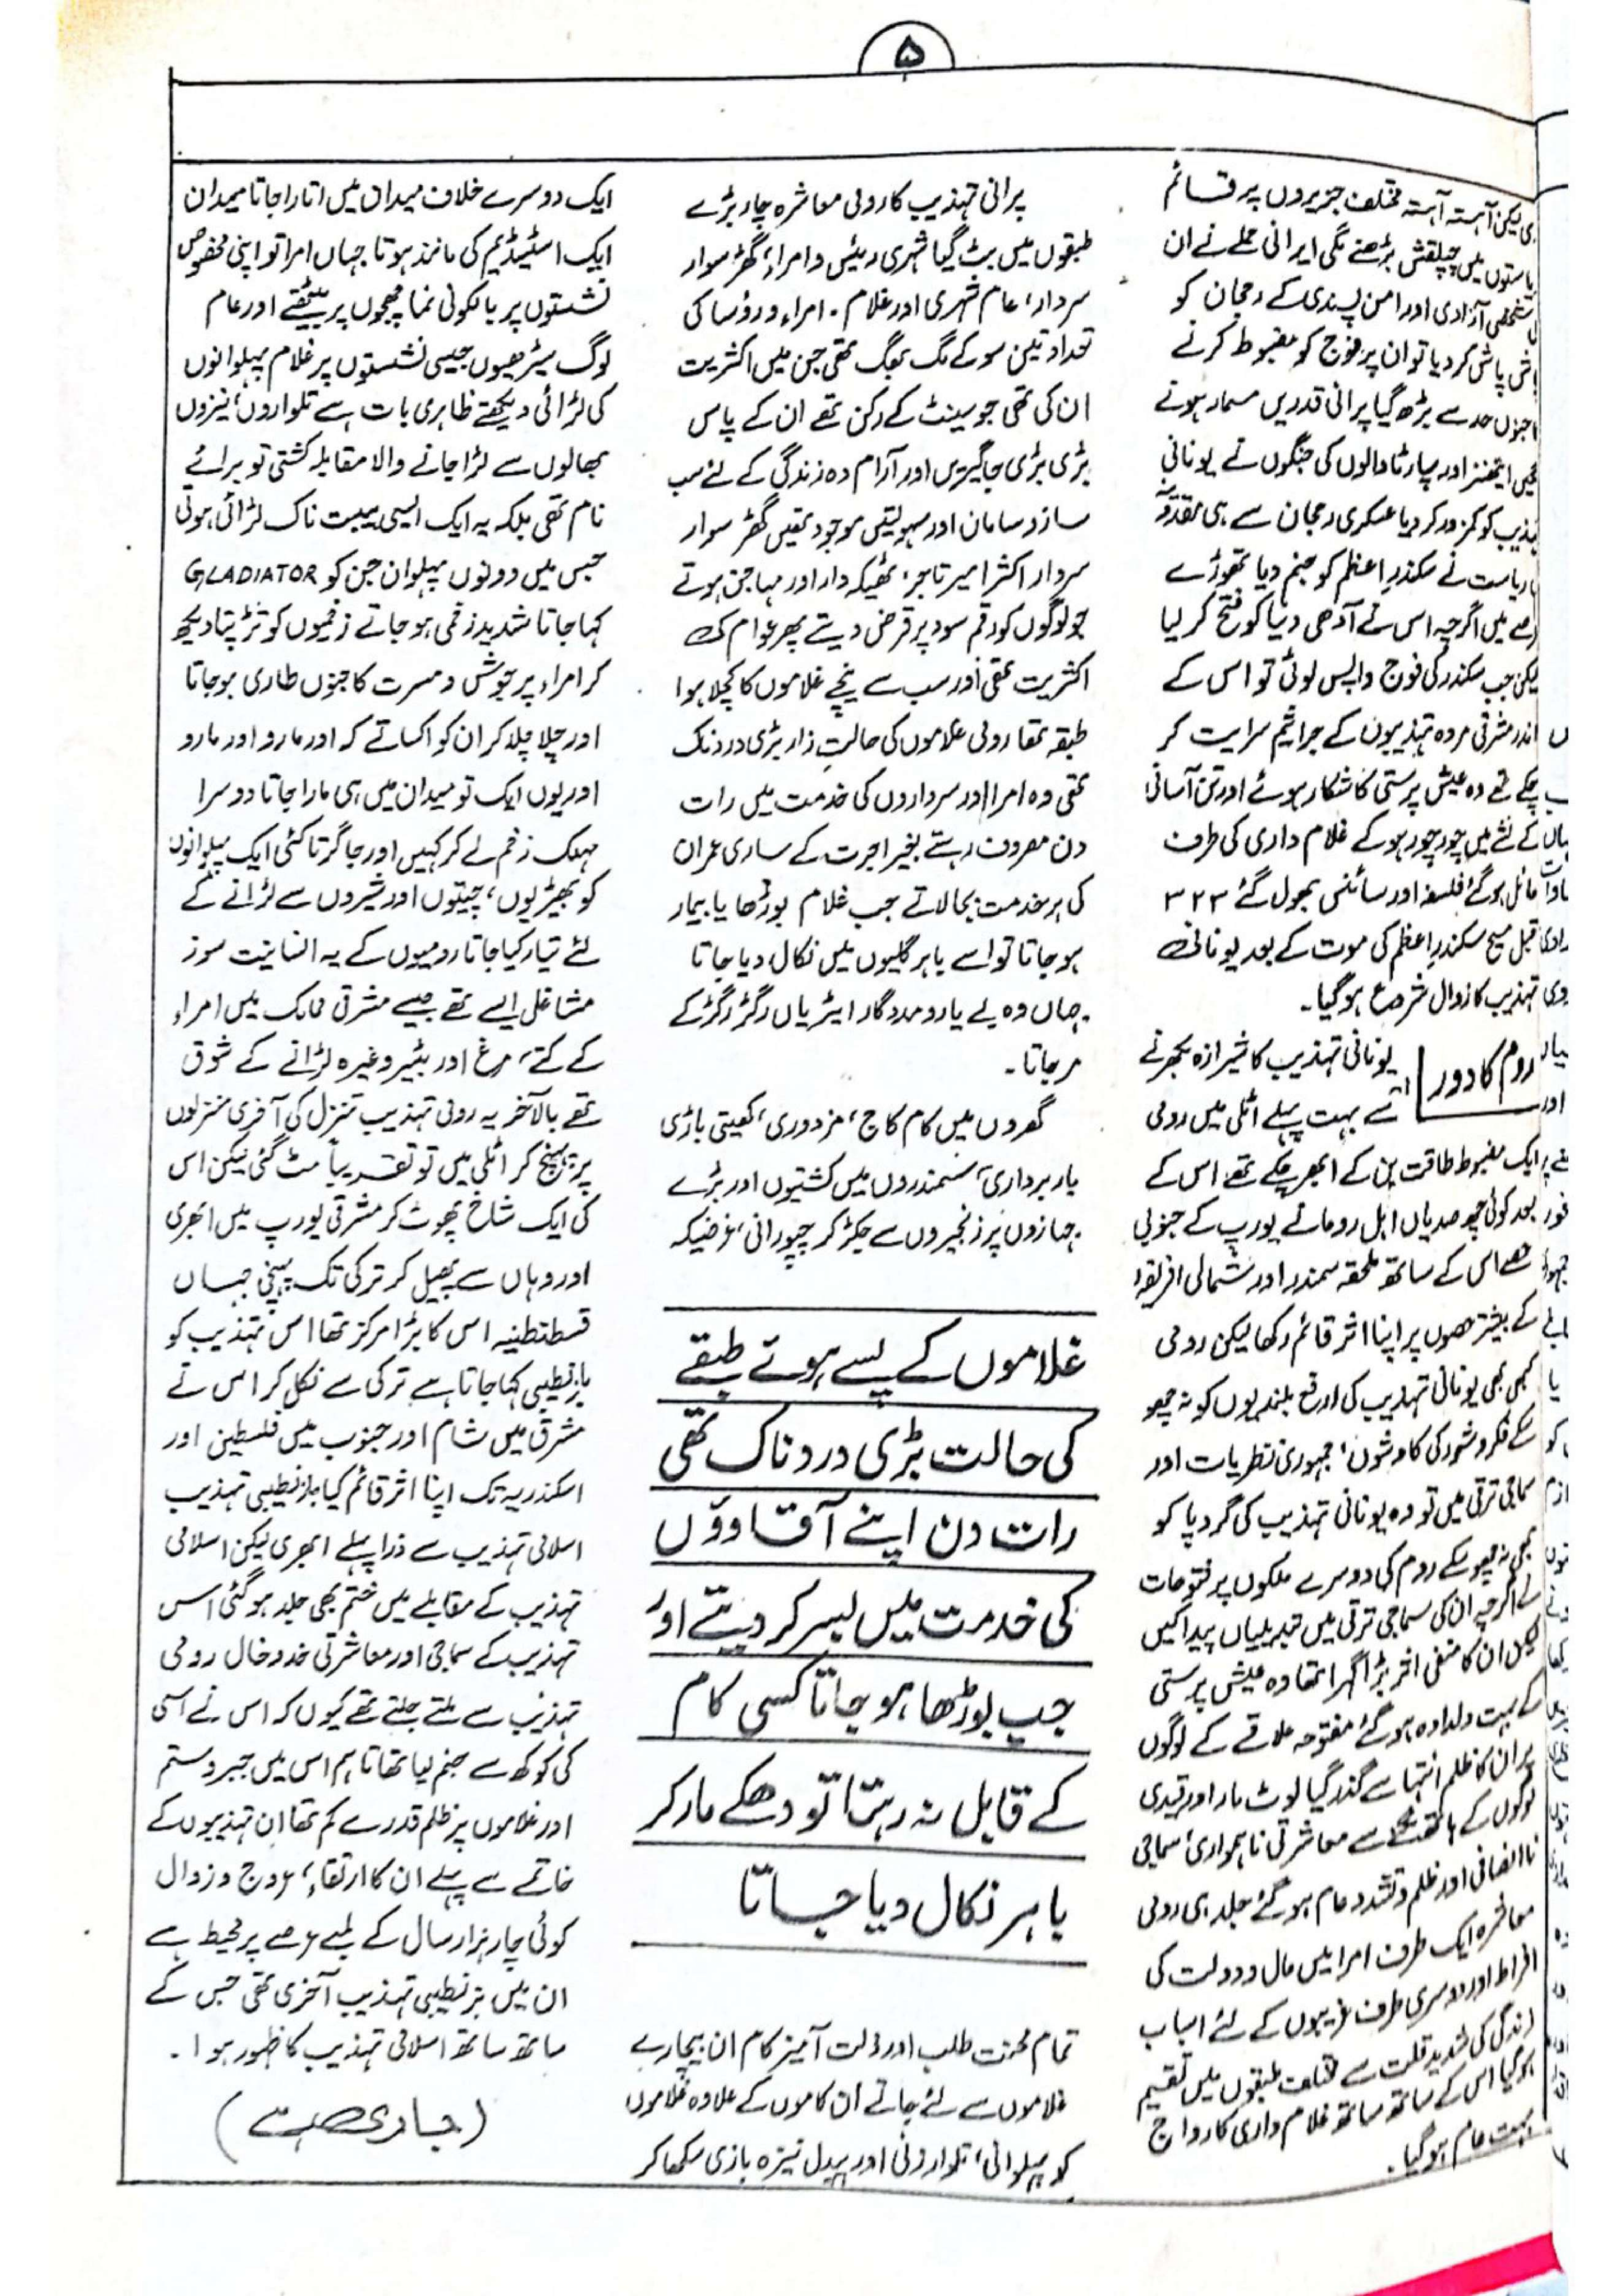 ۵
لیکن آہستہ آہستہ مختلف جزیروں پر قائم
ریاستوں میں چپلقش بڑھنے لگی ایرانی حملے نے ان
شخصی آزادی اور امن پسندی کے رجحان کو
پاش پاش کر دیا تو ان پر فوج کو مضبوط کرنے
جنوں حد سے بڑھ گیا پرانی قدریں مسمار ہونے
ایتھنز اور سپارٹا والوں کی جنگوں نے یونانی
تہذیب کو کمزور کر دیا عسکری رجحان سے ہی مقدونیہ
ریاست نے سکندرِ اعظم کو جنم دیا تھوڑے
عرصے میں اگرچہ اس نے آدھی دنیا کو فتح کر لیا
لیکن جب سکندر کی فوج واپس لوٹی تو اس کے
اندر مشرقی مردہ تہذیبوں کے جراثیم سرایت کر
چکے تھے وہ عیش پرستی کا شکار ہوئے اور تن آسانی
کے نشے میں چور چور ہو کے غلام داری کی طرف
مائل ہو گئے فلسفہ اور سائنس بھول گئے ۳۲۳
قبل مسیح سکندرِ اعظم کی موت کے بعد یونانی
تہذیب کا زوال شروع ہو گیا۔
روم کا دور
یونانی تہذیب کا شیرازہ بکھرنے
سے بہت پہلے اٹلی میں رومی
ایک مضبوط طاقت بن کے ابھر چکے تھے اس کے
بعد کوئی چھ صدیاں اہل روما نے یورپ کے جنوبی
حصے اس کے ساتھ ملحقہ سمندر اور شمالی افریقہ
کے بیشتر حصوں پر اپنا اثر قائم رکھا لیکن رومی
کبھی بھی یونانی تہذیب کی ارفع بلندیوں کو نہ چھو
سکے فکر و شعور کی کاوشوں، جمہوری نظریات اور
سماجی ترقی میں تو وہ یونانی تہذیب کی گرد پا کو
بھی نہ چھو سکے روم کی دوسرے ملکوں پر فتوحات
نے اگرچہ ان کی سماجی ترقی میں تبدیلیاں پیدا کیں
لیکن ان کا منفی اثر بڑا گہرا تھا وہ عیش پرستی
کے بہت دلدادہ ہو گئے مفتوحہ علاقے کے لوگوں
پر ان کا ظلم انتہا سے گذر گیا لوٹ مار اور قیدی
لوگوں کے ہاتھ سے معاشرتی ناہمواری، سماجی
ناانصافی اور ظلم و تشدد عام ہو گئے جلد ہی رومی
معاشرہ ایک طرف امرا میں مال و دولت کی
افراط اور دوسری طرف غریبوں کے لئے اسباب
زندگی کی شدید قلت سے مختلف طبقوں میں تقسیم
ہو گیا اس کے ساتھ ساتھ غلام داری کا رواج
بہت عام ہو گیا۔
پرانی تہذیب کا رومی معاشرہ چار بڑے
طبقوں میں بٹ گیا شہری رئیس و امراء، گھڑ سوار
سردار، عام شہری اور غلام۔ امراء و رؤسا کی
تعداد تین سو کے لگ بھگ تھی جن میں اکثریت
ان کی تھی جو سینٹ کے رکن تھے ان کے پاس
بڑی بڑی جاگیریں اور آرام دہ زندگی کے لئے سب
ساز و سامان اور سہولتیں موجود تھیں گھڑ سوار
سردار اکثر امیر تاجر، ٹھیکہ دار اور مہاجن ہوتے
جو لوگوں کو رقم سود پر قرض دیتے پھر عوام کی
اکثریت تھی اور سب سے نیچے غلاموں کا کچلا ہوا
طبقہ تھا رومی غلاموں کی حالتِ زار بڑی دردناک
تھی وہ امرا اور سرداروں کی خدمت میں رات
دن مصروف رہتے بغیر اجرت کے ساری عمر ان
کی ہر خدمت بجا لاتے جب غلام بوڑھا یا بیمار
ہو جاتا تو اسے باہر گلیوں میں نکال دیا جاتا
جہاں وہ بے یار و مددگار ایڑیاں رگڑ رگڑ کے
مر جاتا۔
گھروں میں کام کاج، مزدوری، کھیتی باڑی
بار برداری، سمندروں میں کشتیوں اور بڑے
جہازوں پر زنجیروں سے جکڑ کر چپو رانی، غرضیکہ
غلاموں کے پسے ہوئے طبقے
کی حالت بڑی دردناک تھی
رات دن اپنے آقاوؤں
کی خدمت میں بسر کر دیتے اور
جب بوڑھا ہو جاتا کسی کام
کے قابل نہ رہتا تو دھکے مار کر
باہر نکال دیا جاتا
تمام محنت طلب اور ذلت آمیز کام ان بیچارے
غلاموں سے لئے جاتے ان کاموں کے علاوہ غلاموں
کو پہلوانی، تلوار زنی اور پیدل نیزہ بازی سکھا کر
ایک دوسرے خلاف میدان میں اتارا جاتا میدان
ایک اسٹیڈیم کی مانند ہوتا جہاں امرا تو اپنی مخصوص
نشستوں پر بالکونی نما چھجوں پر بیٹھتے اور عام
لوگ سیڑھیوں جیسی نشستوں پر غلام پہلوانوں
کی لڑائی دیکھتے ظاہری بات ہے تلواروں، نیزوں
بھالوں سے لڑا جانے والا مقابلہ کشتی تو برائے
نام تھی بلکہ یہ ایک ایسی ہیبت ناک لڑائی ہوتی
جس میں دونوں پہلوان جن کو GLADIATOR
کہا جاتا شدید زخمی ہو جاتے زخمیوں کو تڑپتا دیکھ
کر امراء پر جوش و مسرت کا جنوں طاری ہو جاتا
اور چلا چلا کر ان کو اکساتے کہ اور مارو اور مارو
اور یوں ایک تو میدان میں ہی مارا جاتا دوسرا
مہلک زخم لے کر کہیں اور جا گرتا کئی ایک پہلوانوں
کو بھیڑیوں، چیتوں اور شیروں سے لڑانے کے
لئے تیار کیا جاتا رومیوں کے یہ انسانیت سوز
مشاغل ایسے تھے جیسے مشرقی ممالک میں امراء
کے کتے، مرغ اور بٹیر وغیرہ لڑانے کے شوق
تھے بالآخر یہ رومی تہذیب تنزل کی آخری منزلوں
پر پہنچ کر اٹلی میں تو تقریباً مٹ گئی لیکن اس
کی ایک شاخ پھوٹ کر مشرقی یورپ میں ابھری
اور وہاں سے پھیل کر ترکی تک پہنچی جہاں
قسطنطنیہ اس کا بڑا مرکز تھا اس تہذیب کو
بازنطیبی کہا جاتا ہے ترکی سے نکل کر اس نے
مشرق میں شام اور جنوب میں فلسطین اور
اسکندریہ تک اپنا اثر قائم کیا بازنطیبی تہذیب
اسلامی تہذیب سے ذرا پہلے ابھری لیکن اسلامی
تہذیب کے مقابلے میں ختم بھی جلد ہو گئی اس
تہذیب کے سماجی اور معاشرتی خدوخال رومی
تہذیب سے ملتے جلتے تھے کیوں کہ اس نے اسی
کی کوکھ سے جنم لیا تھا تاہم اس میں جبر و ستم
اور غلاموں پر ظلم قدرے کم تھا ان تہذیبوں کے
خاتمے سے پہلے ان کا ارتقاء، عروج و زوال
کوئی چار ہزار سال کے لمبے عرصے پر محیط ہے
ان میں بزنطیبی تہذیب آخری تھی جس کے
ساتھ ساتھ اسلامی تہذیب کا ظہور ہوا۔
(جاری ہے)